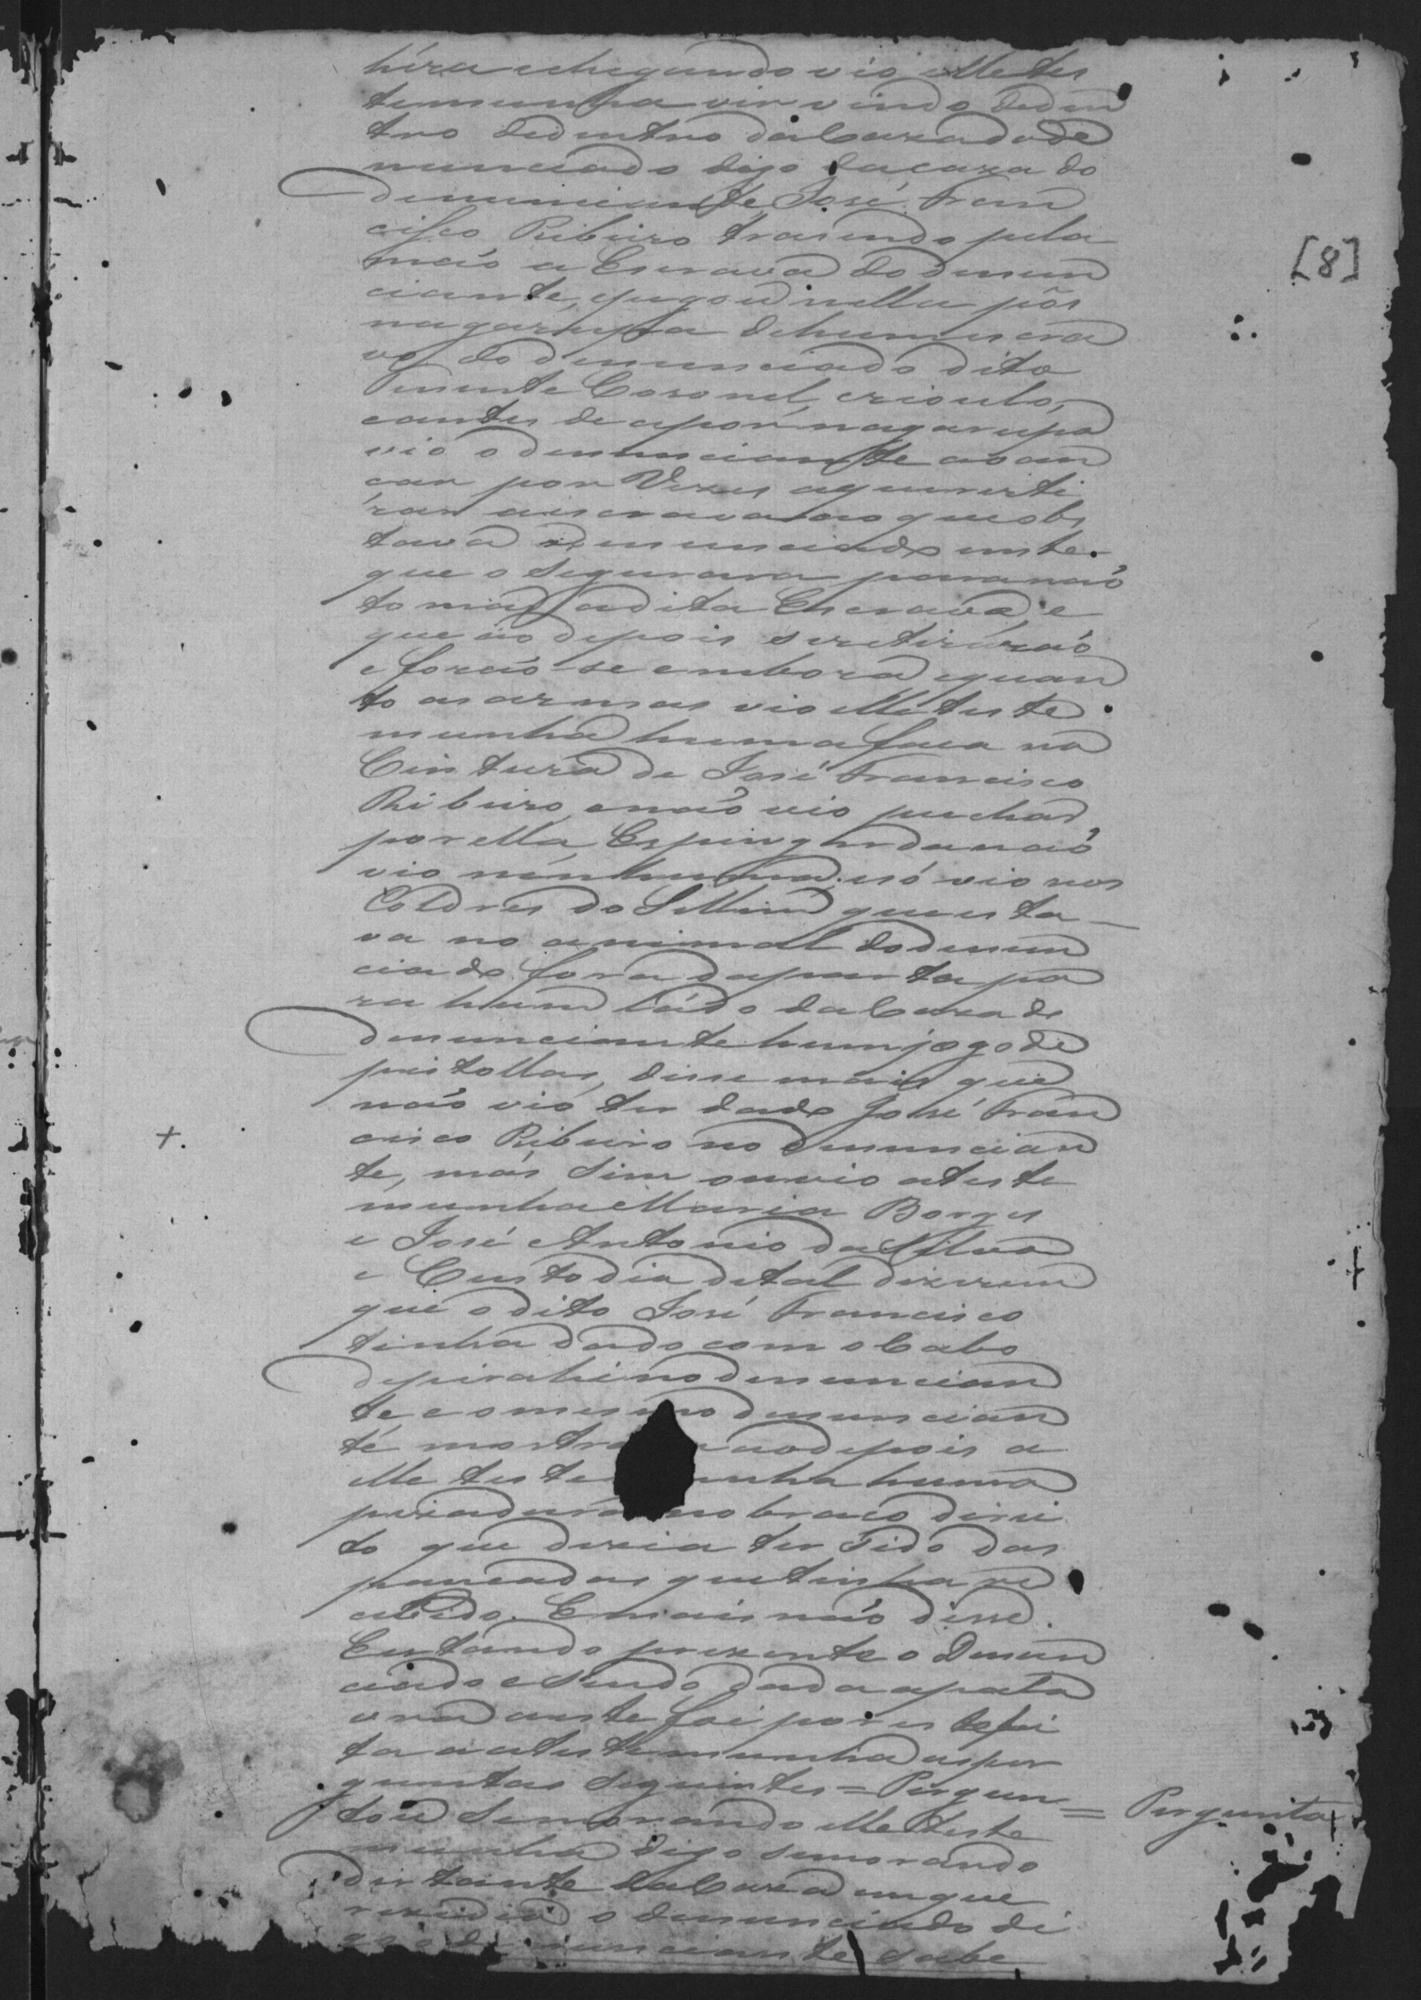 híra e chegando vio elle tes
temunha vir vindo deden
tro de dentro da Caza do de
nunciado digo da caza do
denunciante José Fran
cisco Ribeiro trasendo pela
mão a Escrava do denun
ciante, e pegou nella pôs
na garupa de hum escra
vo do denunciado dito
Tenente Coronel, crioulo,
e antes de a pôr na garupa
vio o denunciante avan
çar por Vezes a querer ti
rar a escrava ao que obs
tava o denunciado neste
que o segurava para não
tomar a dita Escrava, e
que ao depois se retirárão
e forão-se embora e quan
to as armas vio elle teste
munha huma faca na
Cintura de José Francisco
Ribeiro, e não vio puchar
por ella, Espingarda não
vio nenhuma, e só vio nos
Coldres do Sellim que esta
va no animal do denun
ciado fora da porta pa
ra hum lado da Caza do
denunciante hum jogo de
pistollas, disse mais que
não vio ter dado José Fran
cisco Ribeiro no denuncian
te, mas sim ouvio a teste
munha Maria Borges
e José Antonio da Silva
e Custodia de tal dizerem
que o dito José Francisco
tinha dado com o Cabo
de pirahi no denuncian
te e o mesmo denuncian
te mostra ao depois a
elle teste unha huma
pizadura no braço direi
to que dizia ter sido das
pancadas que tinha re
cebido. E mais não disse.
E estando prezente o Denun
ciado e sendo dada a pala
vra a este foi por es te fei
ta a a testemunha as per
guntas seguintes = Pergun
tou se morando elle teste
munha digo se morando
distante da Caza em que
rezidia o denunciado di
go o denunciante sabe
= Pergunta
[8]